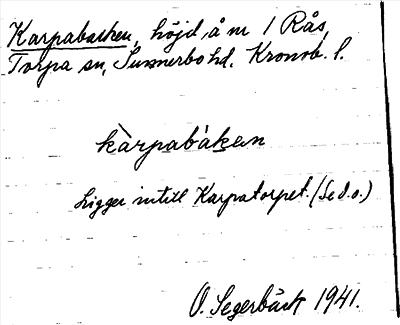 Karpabacken, höjd å nr 1 Rås,
Torpa sn, Sunnerbo hd. Kronob. l.
kàrpabàken
Ligger intill Karpatorpet. (Se d. o.)
O. Segerbäck 1941.